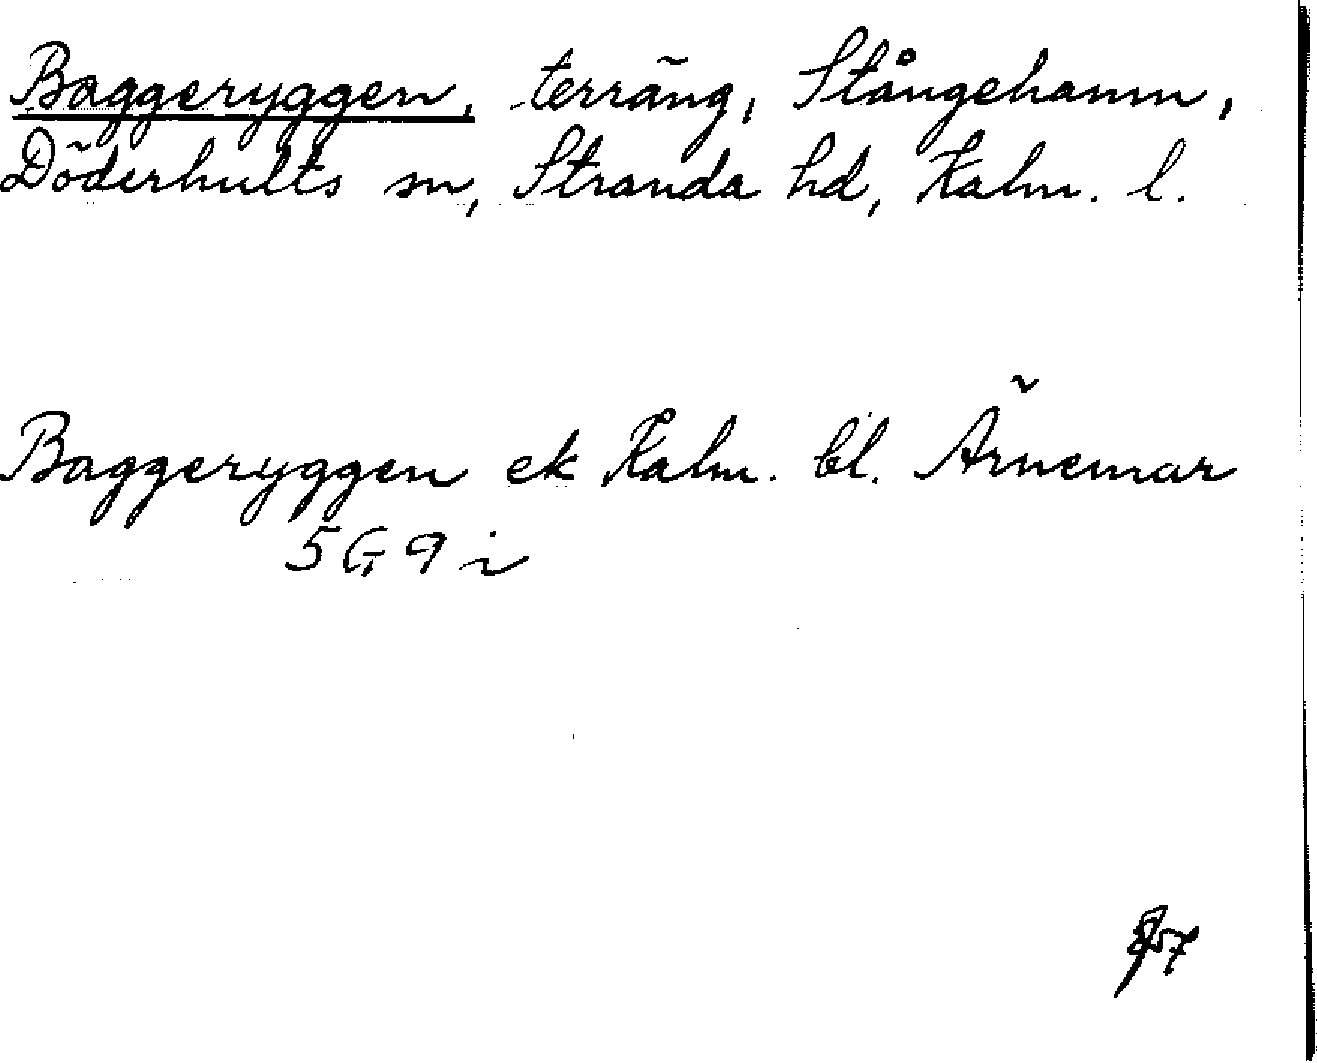 Baggeryggen, terräng, Stångehamn,
Döderhults sn, Stranda hd, Kalm. l.
Baggeryggen ek Kalm. bl. Ärnemar
5 G 9 i